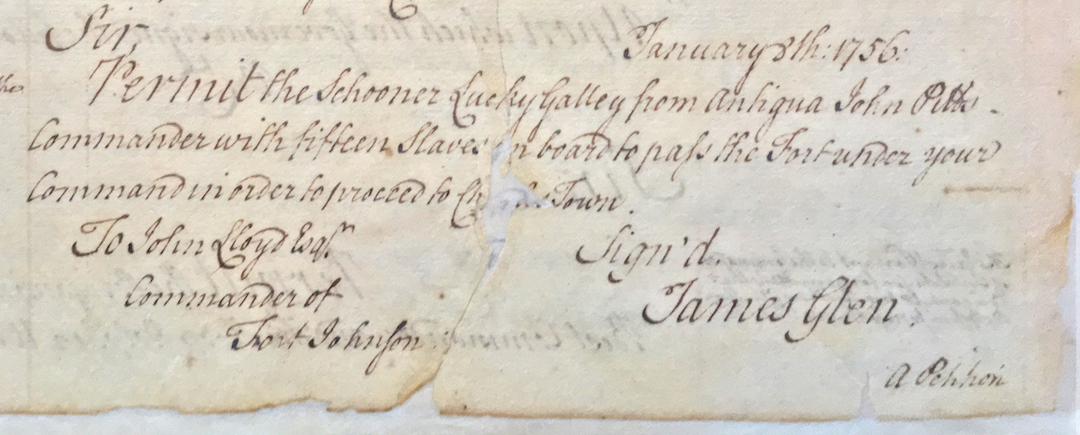 Sir,
January 8th: 1756:
Permit the Schooner Lucky Galley from Antigua John Pitts
Commander with fifteen Slaves on board to pass the Fort under your
Command in order to proceed to Town.
To John Lloyd Esqr
Sign'd
Commander of
James Glen.
Fort Johnson
A Petition